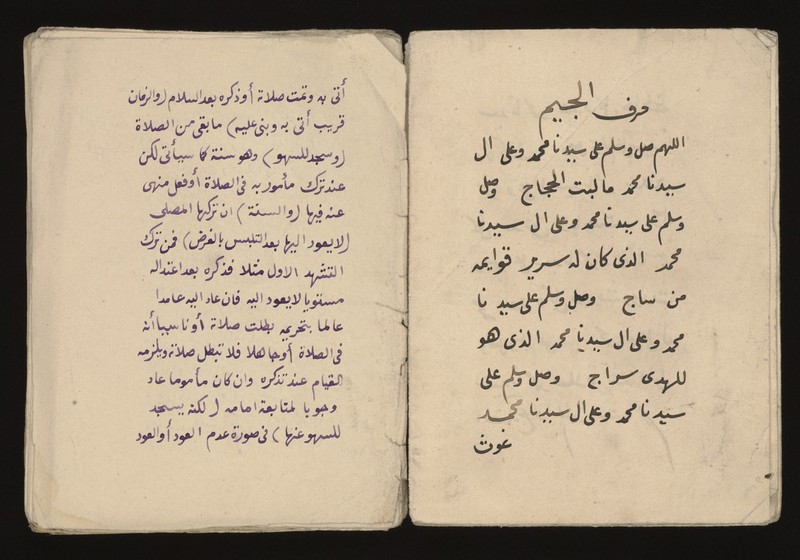 حرف الجيم
اللهم صل وسلم على سيدنا محمد وعلى ال
سيدنا محمد ما لبت الحجاج وصل
وسلم على سيدنا محمد وعلى ال سيدنا
محمد الذى كان له سرير قوايمه
من ساج وصل وسلم على سيدنا
محمد وعلى ال سيدنا محمد الذى هو
للهدى سراج وصل وسلم على
سيدنا محمد وعلى ال سيدنا محمد
غوث
أتى به وتمت صلاته أو ذكره بعد السلام (والزمان
قريب أتى به وبنى عليه) ما بقى من الصلاة
(وسجد للسهو) وهو سنة كما سيأتى لكن
عند ترك مأمور به فى الصلاة أو فعل منهى
عنه فيها (والسنة) ان تركها المصلى
(لا يعود اليها بعد التلبس بالفرض) فمن ترك
التشهد الاول مثلا فذكره بعد اعتداله
مستويا لا يعود اليه فان عاد اليه عامدا
عالما بتحريمه بطلت صلاته أو ناسيا أنه
فى الصلاة أو جاهلا فلا تبطل صلاته ويلزمه
القيام عند تذكره وان كان مأموما عاد
وجوبا لمتابعة امامه (لكنه يسجد
للسهو عنها) فى صورة عدم العود أو العود